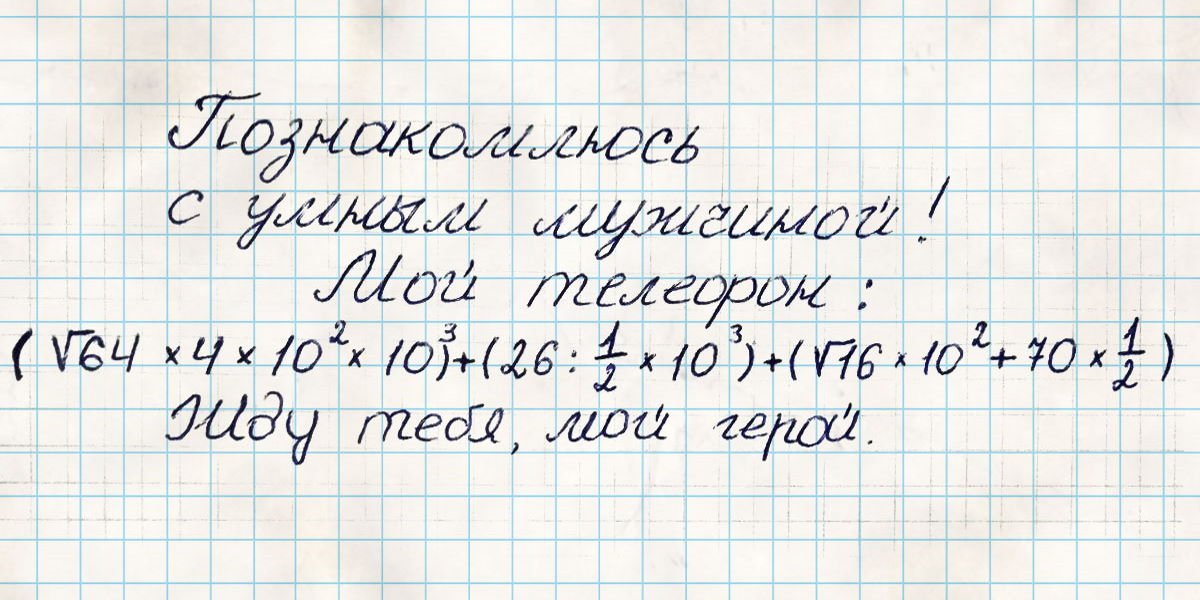 Познакомлюсь
с умным мужчиной!
Мой телефон:
(√64 × 4 × 10² × 10³)+(26 : 1/2 × 10³)+(√16 × 10² + 70 × 1/2)
Жду тебя, мой герой.